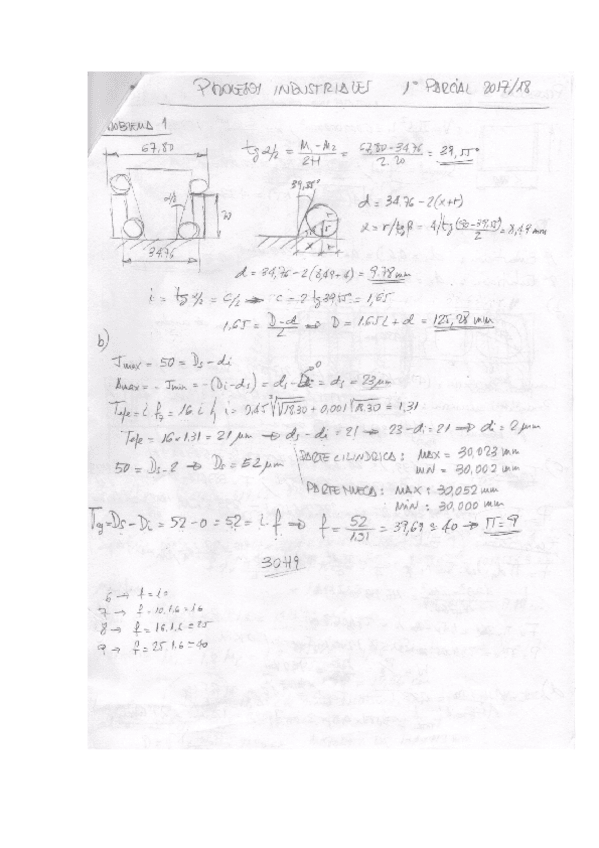 PROCESOS INDUSTRIALES 1º PARCIAL 2017/18
PROBLEMA 1
67,80
tg α/2 = M1-M2/2H = 67,80-34,76/2·20 = 39,55º
α/2
H
34,76
39,55º
x r
r
d = 34,76-2(x+r)
d = 34,76-2(8,49+4) = 9,78 mm
i = tg α/2 = C/2 → C = 2 tg 39,55 = 1,65
1,65 = D-d/L ⇒ D = 1,65L+d = 125,28 mm
b)
Jmax = 50 = Ds-di
Amax = -Jmin = -(Di-ds) = ds-Di = ds = 23 µm
0
Teje = i f7 = 16 i i = 0,45 ∛√18·30 + 0,001 √18·30 = 1,31
Teje = 16×1,31 = 21 µm → ds-di = 21 → 23-di = 21 → di = 2 µm
50 = Ds-2 → Ds = 52 µm
PARTE CILINDRICA: MAX = 30,023 mm
MIN = 30,002 mm
PARTE HUECA: MAX: 30,052 mm
MIN: 30,000 mm
Tag = Ds-Di = 52-0 = 52 = i f ⇒ f = 52/1,31 = 39,69 ≅ 40 → IT = 9
30H9
6 → f = 10
7 → f = 10·1,6 = 16
8 → f = 16·1,6 = 25
9 → f = 25·1,6 = 40